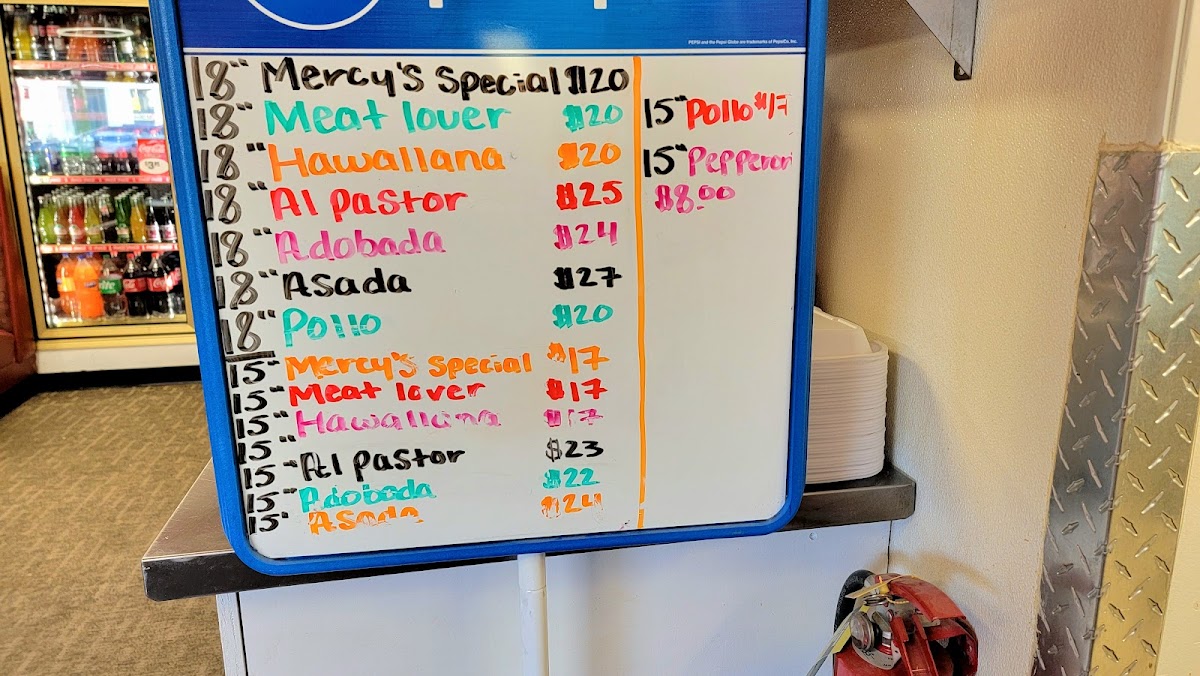 PEPSI and the Pepsi Globe are trademarks of PepsiCo, Inc.
18" Mercy's Special $20
18" Meat lover $20
18" Hawallana $20
18" Al Pastor $25
18" Adobada $24
18" Asada $27
18" Pollo $20
15" Mercy's Special $17
15" Meat lover $17
15" Hawallana $17
15"
15" Al Pastor $23
15" Adobada $22
15" Asada $24
15" Pollo $17
15" Pepperori
$8.00
Coca-Cola